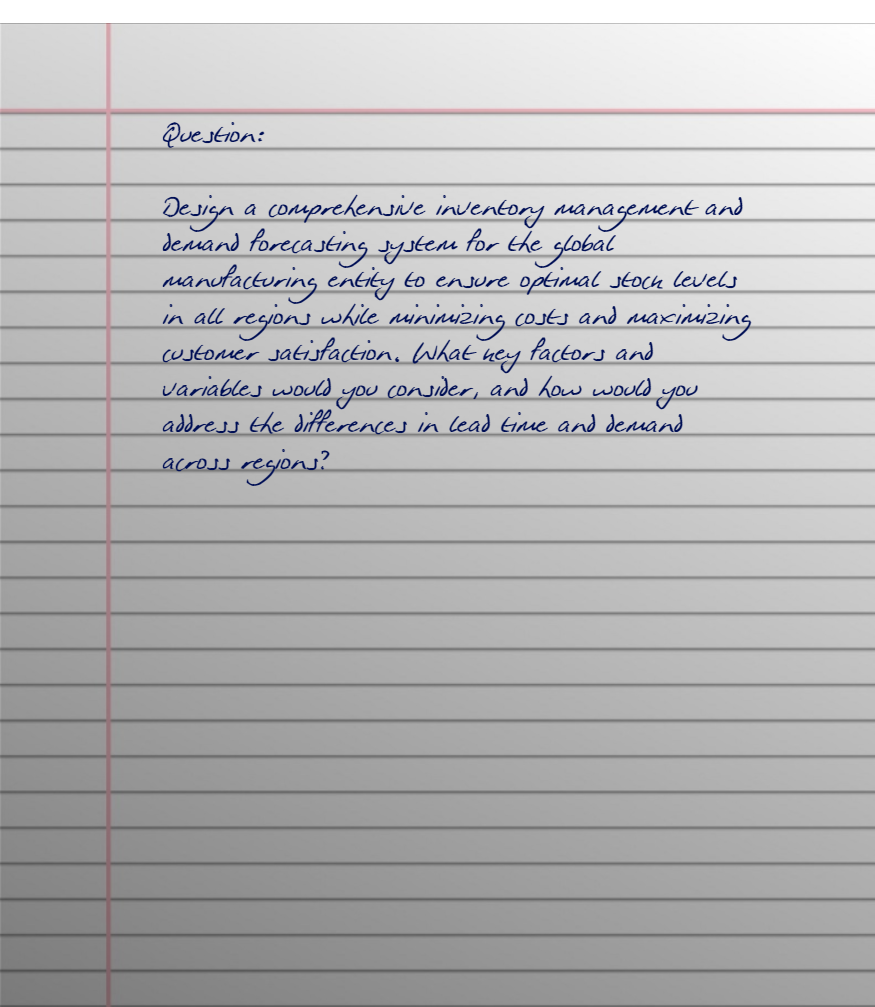 Question:
Design a comprehensive inventory management and
demand forecasting system for the global
manufacturing entity to ensure optimal stock levels
in all regions while minimizing costs and maximizing
customer satisfaction. What key factors and
variables would you consider, and how would you
address the differences in lead time and demand
across regions?